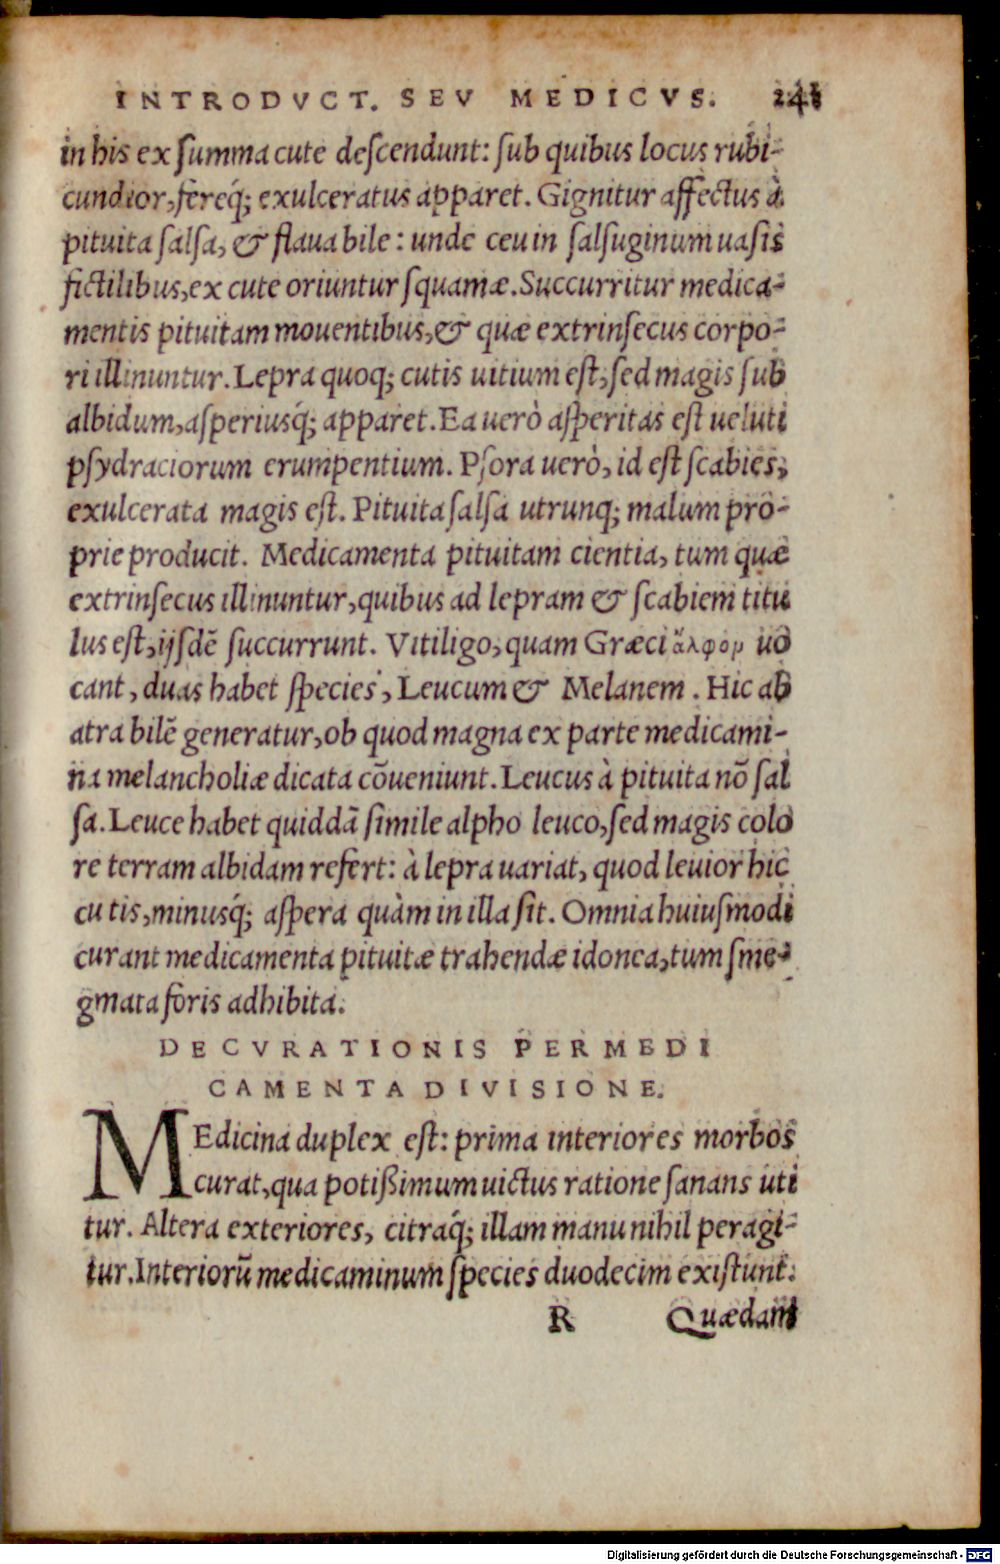 INTRODVCT. SEV MEDICVS. 241
in his ex summa cute descendunt: sub quibus locus rubi-
cundior, ferèq́; exulceratus apparet. Gignitur affectus à
pituita salsa, & flaua bile: unde ceu in salsuginum uasis
fictilibus, ex cute oriuntur squamæ. Succurritur medica-
mentis pituitam mouentibus, & quæ extrinsecus corpo-
ri illinuntur. Lepra quoq; cutis uitium est, sed magis sub
albidum, asperiusq́; apparet. Ea uerò asperitas est ueluti
psydraciorum erumpentium. Psora uerò, id est scabies,
exulcerata magis est. Pituita salsa utrunq; malum pro-
prie producit. Medicamenta pituitam cientia, tum quæ
extrinsecus illinuntur, quibus ad lepram & scabiem titu
lus est, ijsdē succurrunt. Vitiligo, quam Græci ἄλφομ uo
cant, duas habet species, Leucum & Melanem. Hic ab
atra bilē generatur, ob quod magna ex parte medicami-
na melancholiæ dicata cōueniunt. Leucus à pituita nō sal
sa. Leuce habet quiddā simile alpho leuco, sed magis colo
re terram albidam refert: à lepra uariat, quod leuior hic
cu tis, minusq́; aspera quàm in illa sit. Omnia huiusmodi
curant medicamenta pituitæ trahendæ idonea, tum sme-
gmata foris adhibita.
DE CVRATIONIS PER MEDI
CAMENTA DIVISIONE.
MEdicina duplex est: prima interiores morbos
curat, qua potißimum uictus ratione sanans uti
tur. Altera exteriores, citraq́; illam manu nihil peragi-
tur. Interiorū medicaminum species duodecim existunt.
R Quædam
Digitalisierung gefördert durch die Deutsche Forschungsgemeinschaft - DFG